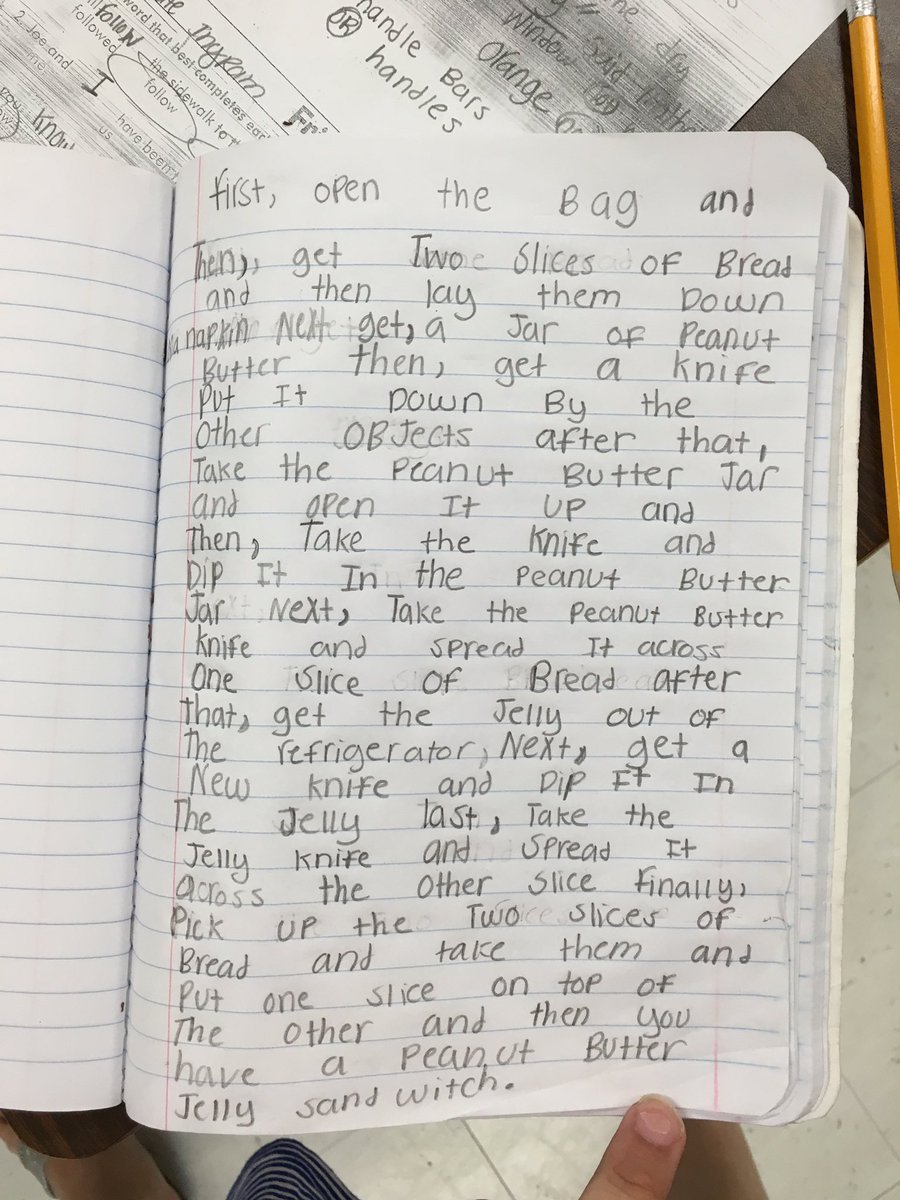 word that best completes ear
Ingram
follow
followed
the sidewalk to t
follow
2. Joe and
I
us
have been t
Know
Fri
handle Bars
OR
handles
window
Said
dry
Orange
first, open the Bag and
Then,, get Two slices of Bread
and then lay them Down
a napkin Next get, a Jar of Peanut
Butter then, get a knife
Put It Down By the
other OBJects after that,
Take the Peanut Butter Jar
and open It up and
Then, Take the Knife and
Dip It In the peanut Butter
Jar Next, Take the Peanut Butter
knife and spread It across
one slice of Bread after
that, get the Jelly out of
The refrigerator, Next, get a
New knife and Dip It In
The Jelly last, Take the
Jelly knife and spread It
across the other slice finally,
Pick up the Two slices of
Bread and take them and
Put one slice on top of
The other and then you
have a Peanut Butter
Jelly sand witch.